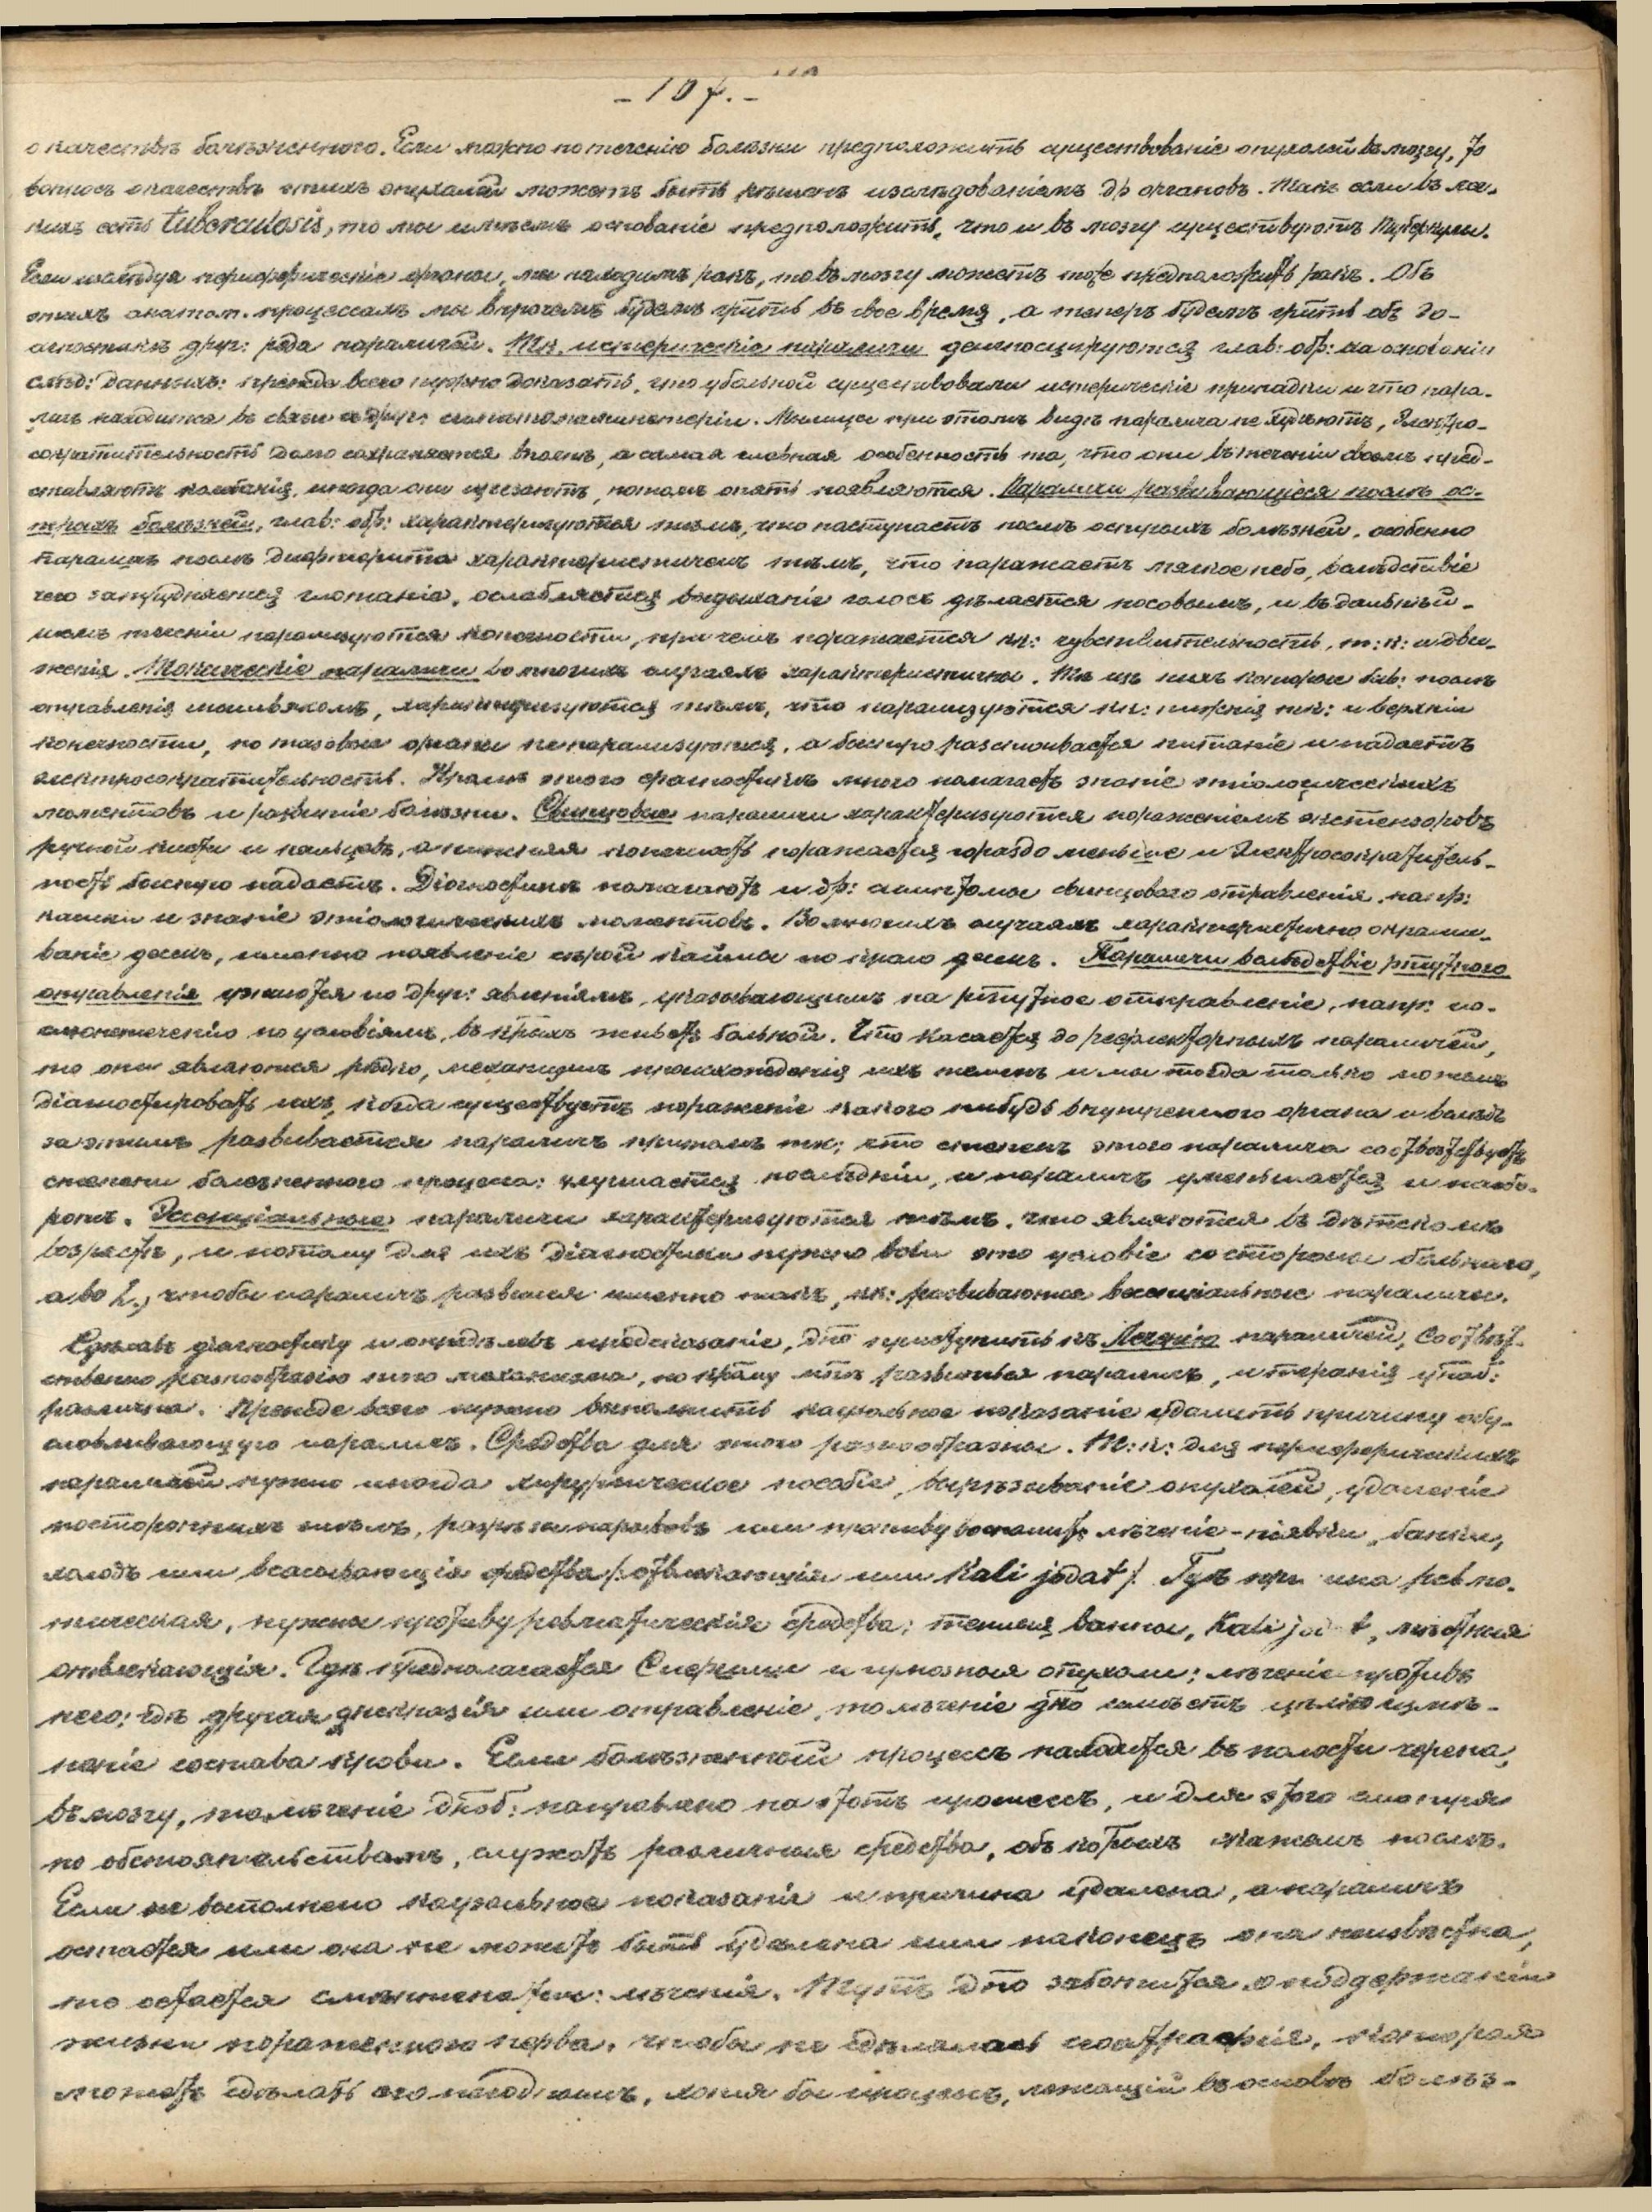 - 107. -
о качествѣ болѣзненнаго. Если можно по теченію болѣзни предположить существованіе опухолей въ мозгу, то
вопросъ о качествѣ этихъ опухолей можетъ быть рѣшенъ изслѣдованіемъ др органовъ. Такъ если въ лег-
кихъ есть tuberculosis, то мы имѣемъ основаніе предположить, что и въ мозгу существуютъ туберкулы.
Если изслѣдуя периферическіе органы, мы находимъ ракъ, то въ мозгу можетъ тоже предположить ракъ. Объ
этихъ анатом. процессахъ мы впрочемъ будемъ грить въ свое время, а теперь будемъ грить объ діа-
гностикѣ друг: рода параличей. Тк. истерическіе параличи діагносцируются глав: обр: на основаніи
слѣд: данныхъ: прежде всего нужно доказать, что у больной существовали истерическіе припадки и что пара-
личъ находится въ связи съ друг: симптомами истеріи. Мышцы при этомъ видѣ паралича не худѣютъ, электро-
сократительность долго сохраняется вполнѣ, а самая главная особенность та, что они въ теченіи своемъ пред-
ставляютъ колебанія, иногда они исчезаютъ, потомъ опять появляются. Параличи развивающіеся послѣ ос-
трыхъ болѣзней, глав: обр: характеризуются тѣмъ, что наступаетъ послѣ острыхъ болѣзней, особенно
параличъ послѣ дифтерита характеристиченъ тѣмъ, что поражаетъ мягкое небо, вслѣдствіе
чего затрудняется глотаніе, ослабляется выдыханіе голосъ дѣлается носовымъ, и въ дальнѣй-
шемъ теченіи парализуются конечности, при чемъ поражается кк: чувствительность, т:к: и дви-
женія. Токсическіе параличи во многихъ случаяхъ характеристичны. Тѣ изъ нихъ которые быв: послѣ
отравленія мышьякомъ, характеризуются тѣмъ, что парализуются кк: нижнія тк: и верхнія
конечности, но тазовые органы не парализуются, а быстро разстроивается питаніе и падаетъ
электросократительность. Кромѣ этого діагностикѣ много помогаетъ знаніе этіологическихъ
моментовъ и развитіе болѣзни. Свинцовые параличи характеризуются пораженіемъ экстензоровъ
ручной кисти и пальцевъ, а нижняя конечность поражается гораздо меньше и электросократитель-
ность быстро падаетъ. Діагностикѣ помогаютъ и др: симптомы свинцоваго отравленія, напр:
колики и знаніе этіологическихъ моментовъ. Во многихъ случаяхъ характеристично окраши-
ваніе десенъ, именно появленіе сѣрой каймы по краю десенъ. Параличи вслѣдствіе ртутнаго
отравленія узнаются по друг: явленіямъ, указывающимъ на ртутное отправленіе, напр: по
слюнотеченію по условіямъ, въ крыхъ живетъ больной. Что касается до рефлекторныхъ параличей,
то они являются рѣдко, механизмъ происхожденія ихъ теменъ и мы тогда только можемъ
діагностировать ихъ, когда существуетъ пораженіе какого нибудь внутренняго органа и вслѣдъ
за этимъ развивается параличъ притомъ тк: что степень этого паралича соотвѣтствуетъ
степени болѣзненнаго процеса: улучшается послѣдній, и параличъ уменьшается и наобо-
ротъ. Эссенціальные параличи характеризуются тѣмъ, что являются въ дѣтскомъ
возрастѣ, и потому для ихъ діагностики нужно во1 это условіе со стороны больнаго,
а во 2., чтобы параличъ развился именно такъ, кк: развиваются эссенціальные параличи.
Сдѣлавъ діагностику и опредѣливъ предсказаніе, дно приступить къ Леченію параличей, Соотвѣт-
ственно разнообразію того механизма, по крому развился параличъ, и терапія
различна. Прежде всего нужно выполнить каузальное показаніе удалить причину обу-
словливающую параличъ. Средства для этого разнообразны. Т:к: для периферическихъ
параличей нужно иногда хирургическое пособіе, вырѣзываніе опухолей, удаленіе
постороннихъ тѣлъ, разрѣзы нарывовъ или противувоспалит лѣченіе - піявки, банки,
холодъ или всасывающія средства /:отвлекающія или Kali jodat/. Гдѣ причина ревма-
тическая, нужны противуревматическія средства: теплыя ванны, Kali jodat, мѣстныя
отвлекающія. Гдѣ предполагается Сифилисъ и опухоли: лѣченіе противъ
него: гдѣ другая дискразія или отравленіе, то лѣченіе дно имѣетъ цѣлію измѣ-
неніе состава крови. Если болѣзненный процессъ находится въ полости черепа,
въ мозгу, то лѣченіе дноб: направлено на этотъ процессъ, и для этого смотря
по обстоятельствамъ, служатъ различныя средства, объ которыхъ скажемъ послѣ.
Если же выполнено каузальное показаніе и причина удалена, а параличъ
остается или она не можетъ быть удалена или наконецъ она неизвѣстна,
то остается симптомат: лѣченія. Тутъ дно заботиться о поддержаніи
жизни пораженнаго нерва, чтобы не сдѣлалась атрофія, которая
можетъ сдѣлать его негоднымъ, хотя бы процессъ, лежащій въ основѣ болѣз-